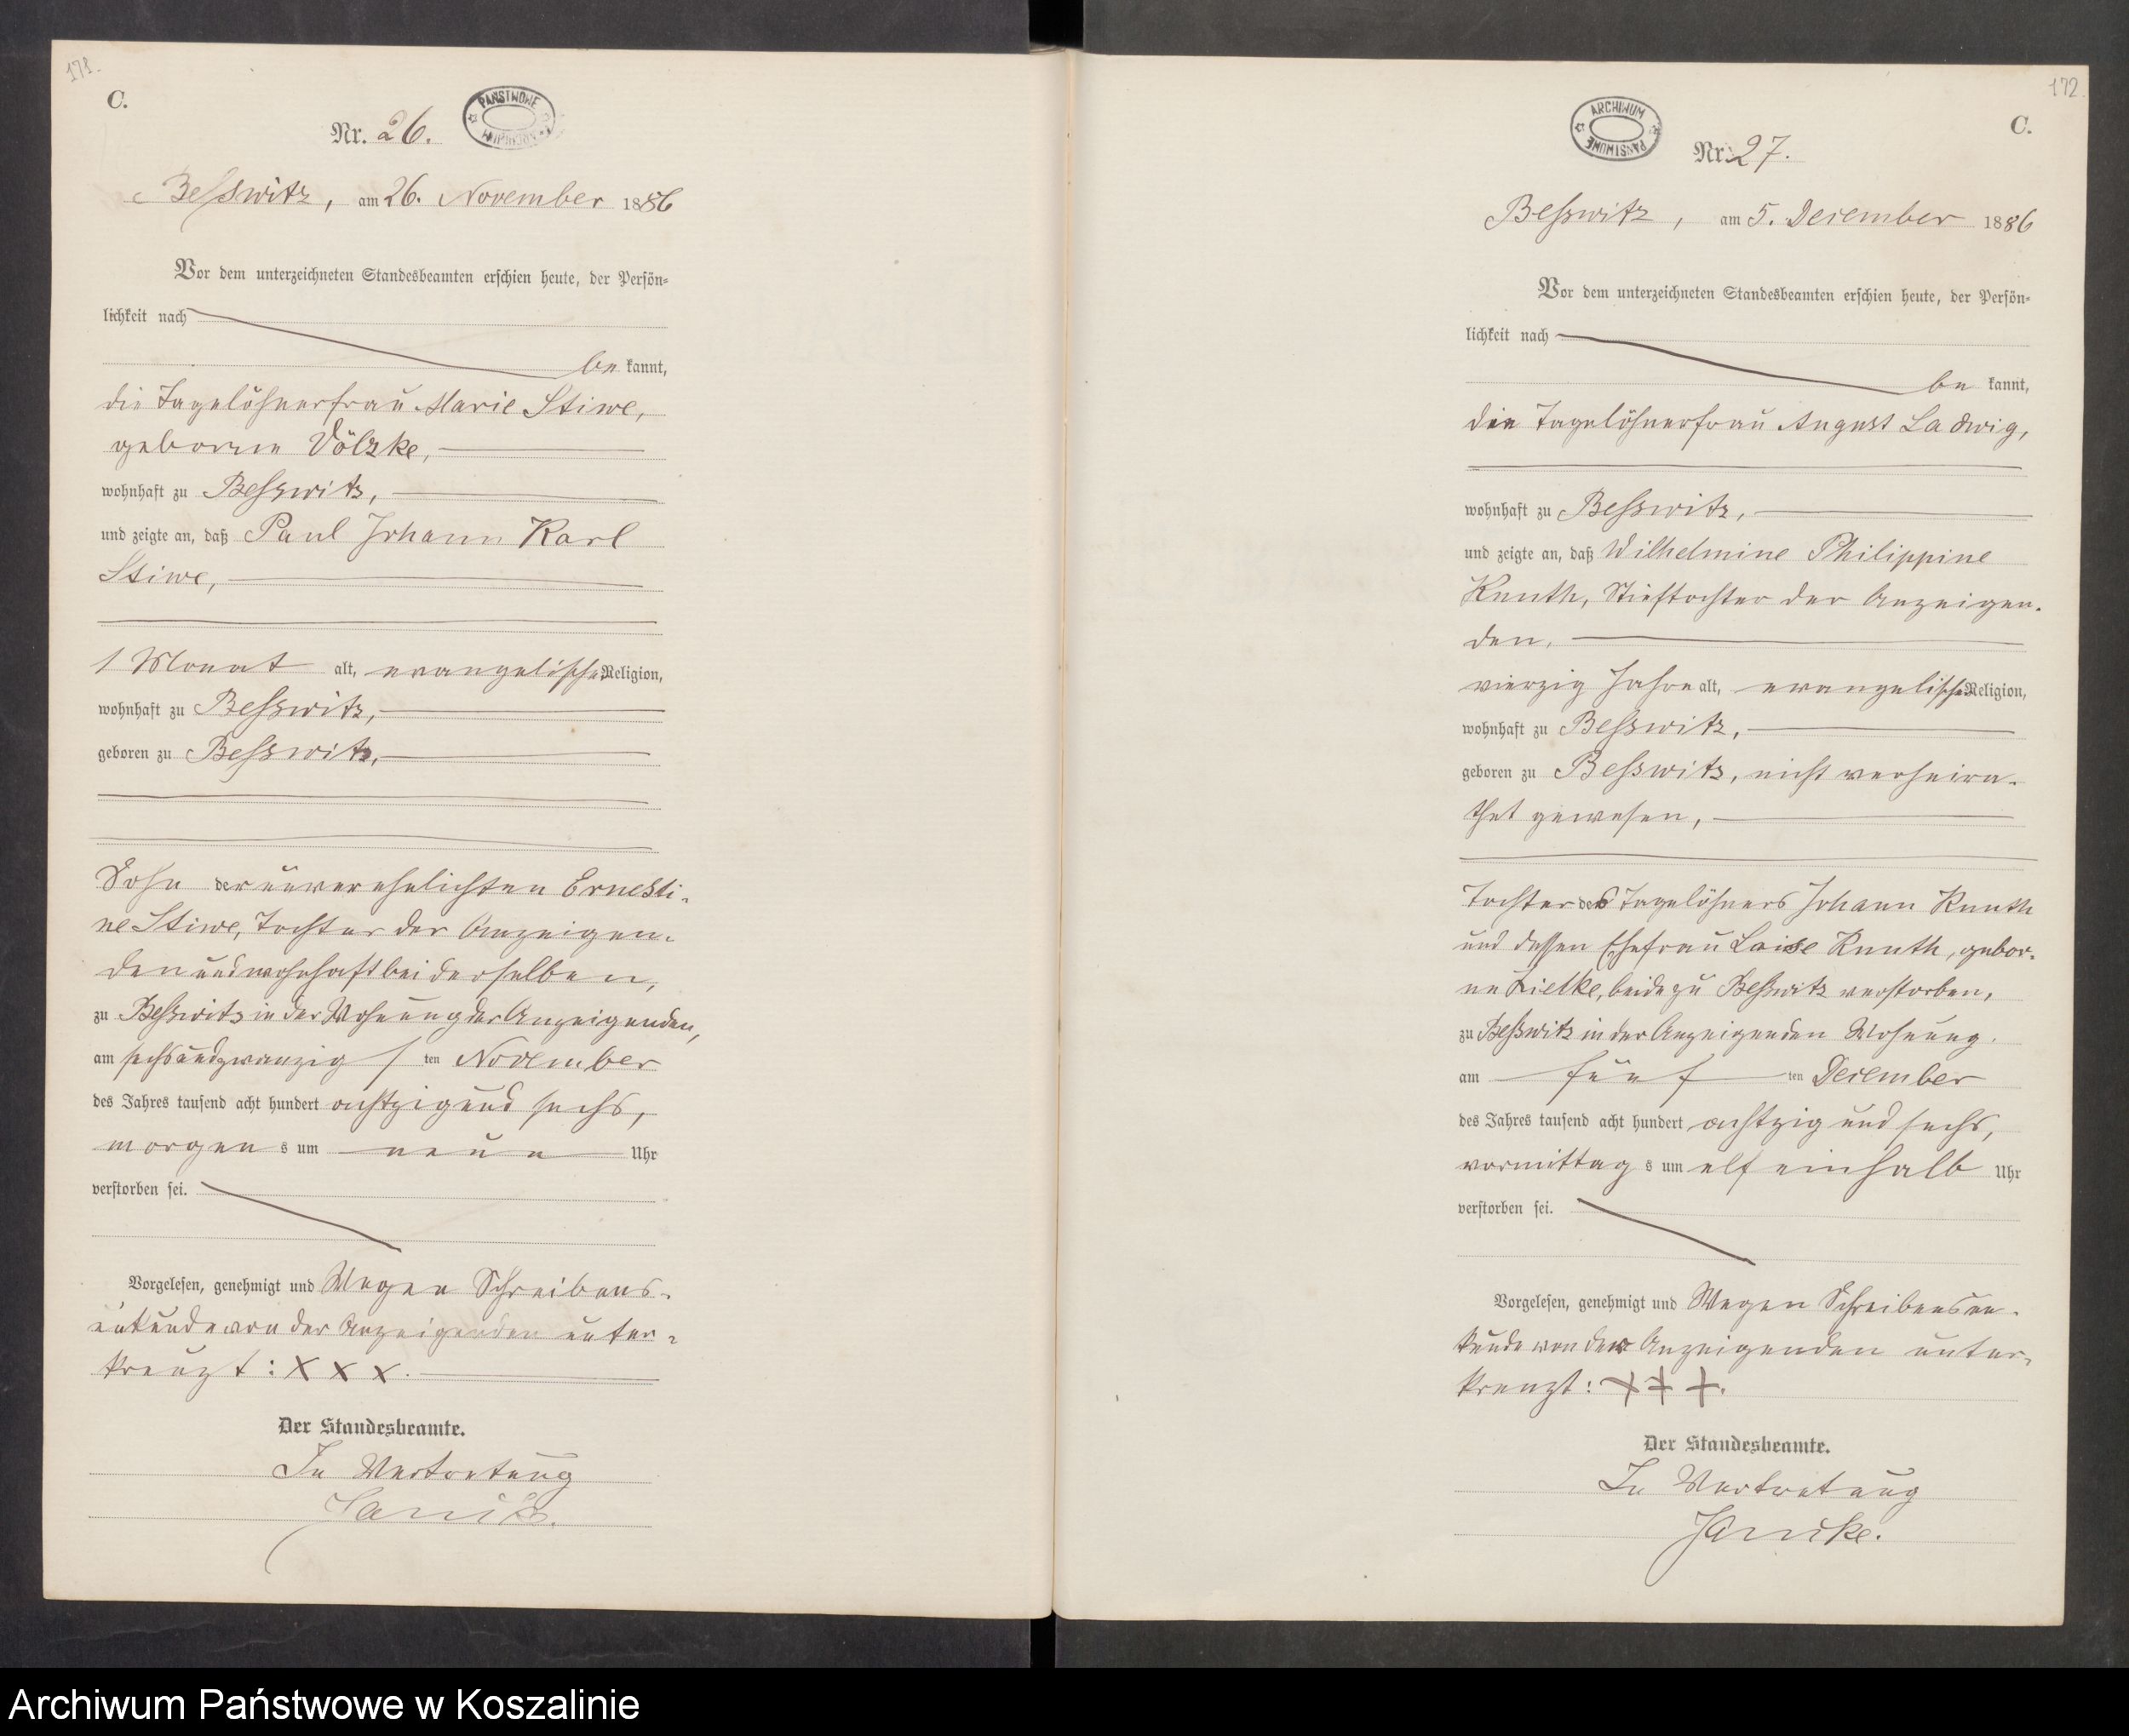 171.
C.
PAŃSTWOWE
ARCHIWUM
Nr. 26.
Besswitz, am 26. November 1886
Vor dem unterzeichneten Standesbeamten erschien heute, der Persön-
lichkeit nach
be kannt,
die Tagelöhnerfrau Marie Stiwe,
geborne Völzke,
wohnhaft zu Besswitz,
und zeigte an, daß Paul Johann Karl
Stiwe,
1 Monat alt, evangelischer Religion,
wohnhaft zu Besswitz,
geboren zu Besswitz,
Sohn der unverehelichten Ernesti-
ne Stiwe, Tochter der Anzeigen-
den und wohnhaft bei derselben,
zu Besswitz in der Wohnung der Anzeigenden,
am sechsundzwanzigsten November
des Jahres tausend acht hundert achtzig und sechs,
morgens um neun Uhr
verstorben sei.
Vorgelesen, genehmigt und Wegen Schreibens-
unkunde von der Anzeigenden unter-
kreuzt: X X X.
Der Standesbeamte.
In Vertretung
172.
C.
ARCHIWUM
PAŃSTWOWE
Nr. 27.
Besswitz, am 5. Dezember 1886
Vor dem unterzeichneten Standesbeamten erschien heute, der Persön-
lichkeit nach
be kannt,
die Tagelöhnerfrau August Ladwig,
wohnhaft zu Besswitz,
und zeigte an, daß Wilhelmine Philippine
Knuth, Stieftochter der Anzeigen-
den,
vierzig Jahre alt, evangelischer Religion,
wohnhaft zu Besswitz,
geboren zu Besswitz, nicht verheira-
thet gewesen,
Tochter des Tagelöhners Johann Knuth
und dessen Ehefrau Loise Knuth, gebor-
ne Zielke, beide zu Besswitz verstorben,
zu Besswitz in der Anzeigenden Wohnung.
am fünften Dezember
des Jahres tausend acht hundert achtzig und sechs,
vormittags um elf einhalb Uhr
verstorben sei.
Vorgelesen, genehmigt und Wegen Schreibensun-
kunde von der Anzeigenden unter-
kreuzt: + + +.
Der Standesbeamte.
In Vertretung
Janike.
Archiwum Państwowe w Koszalinie